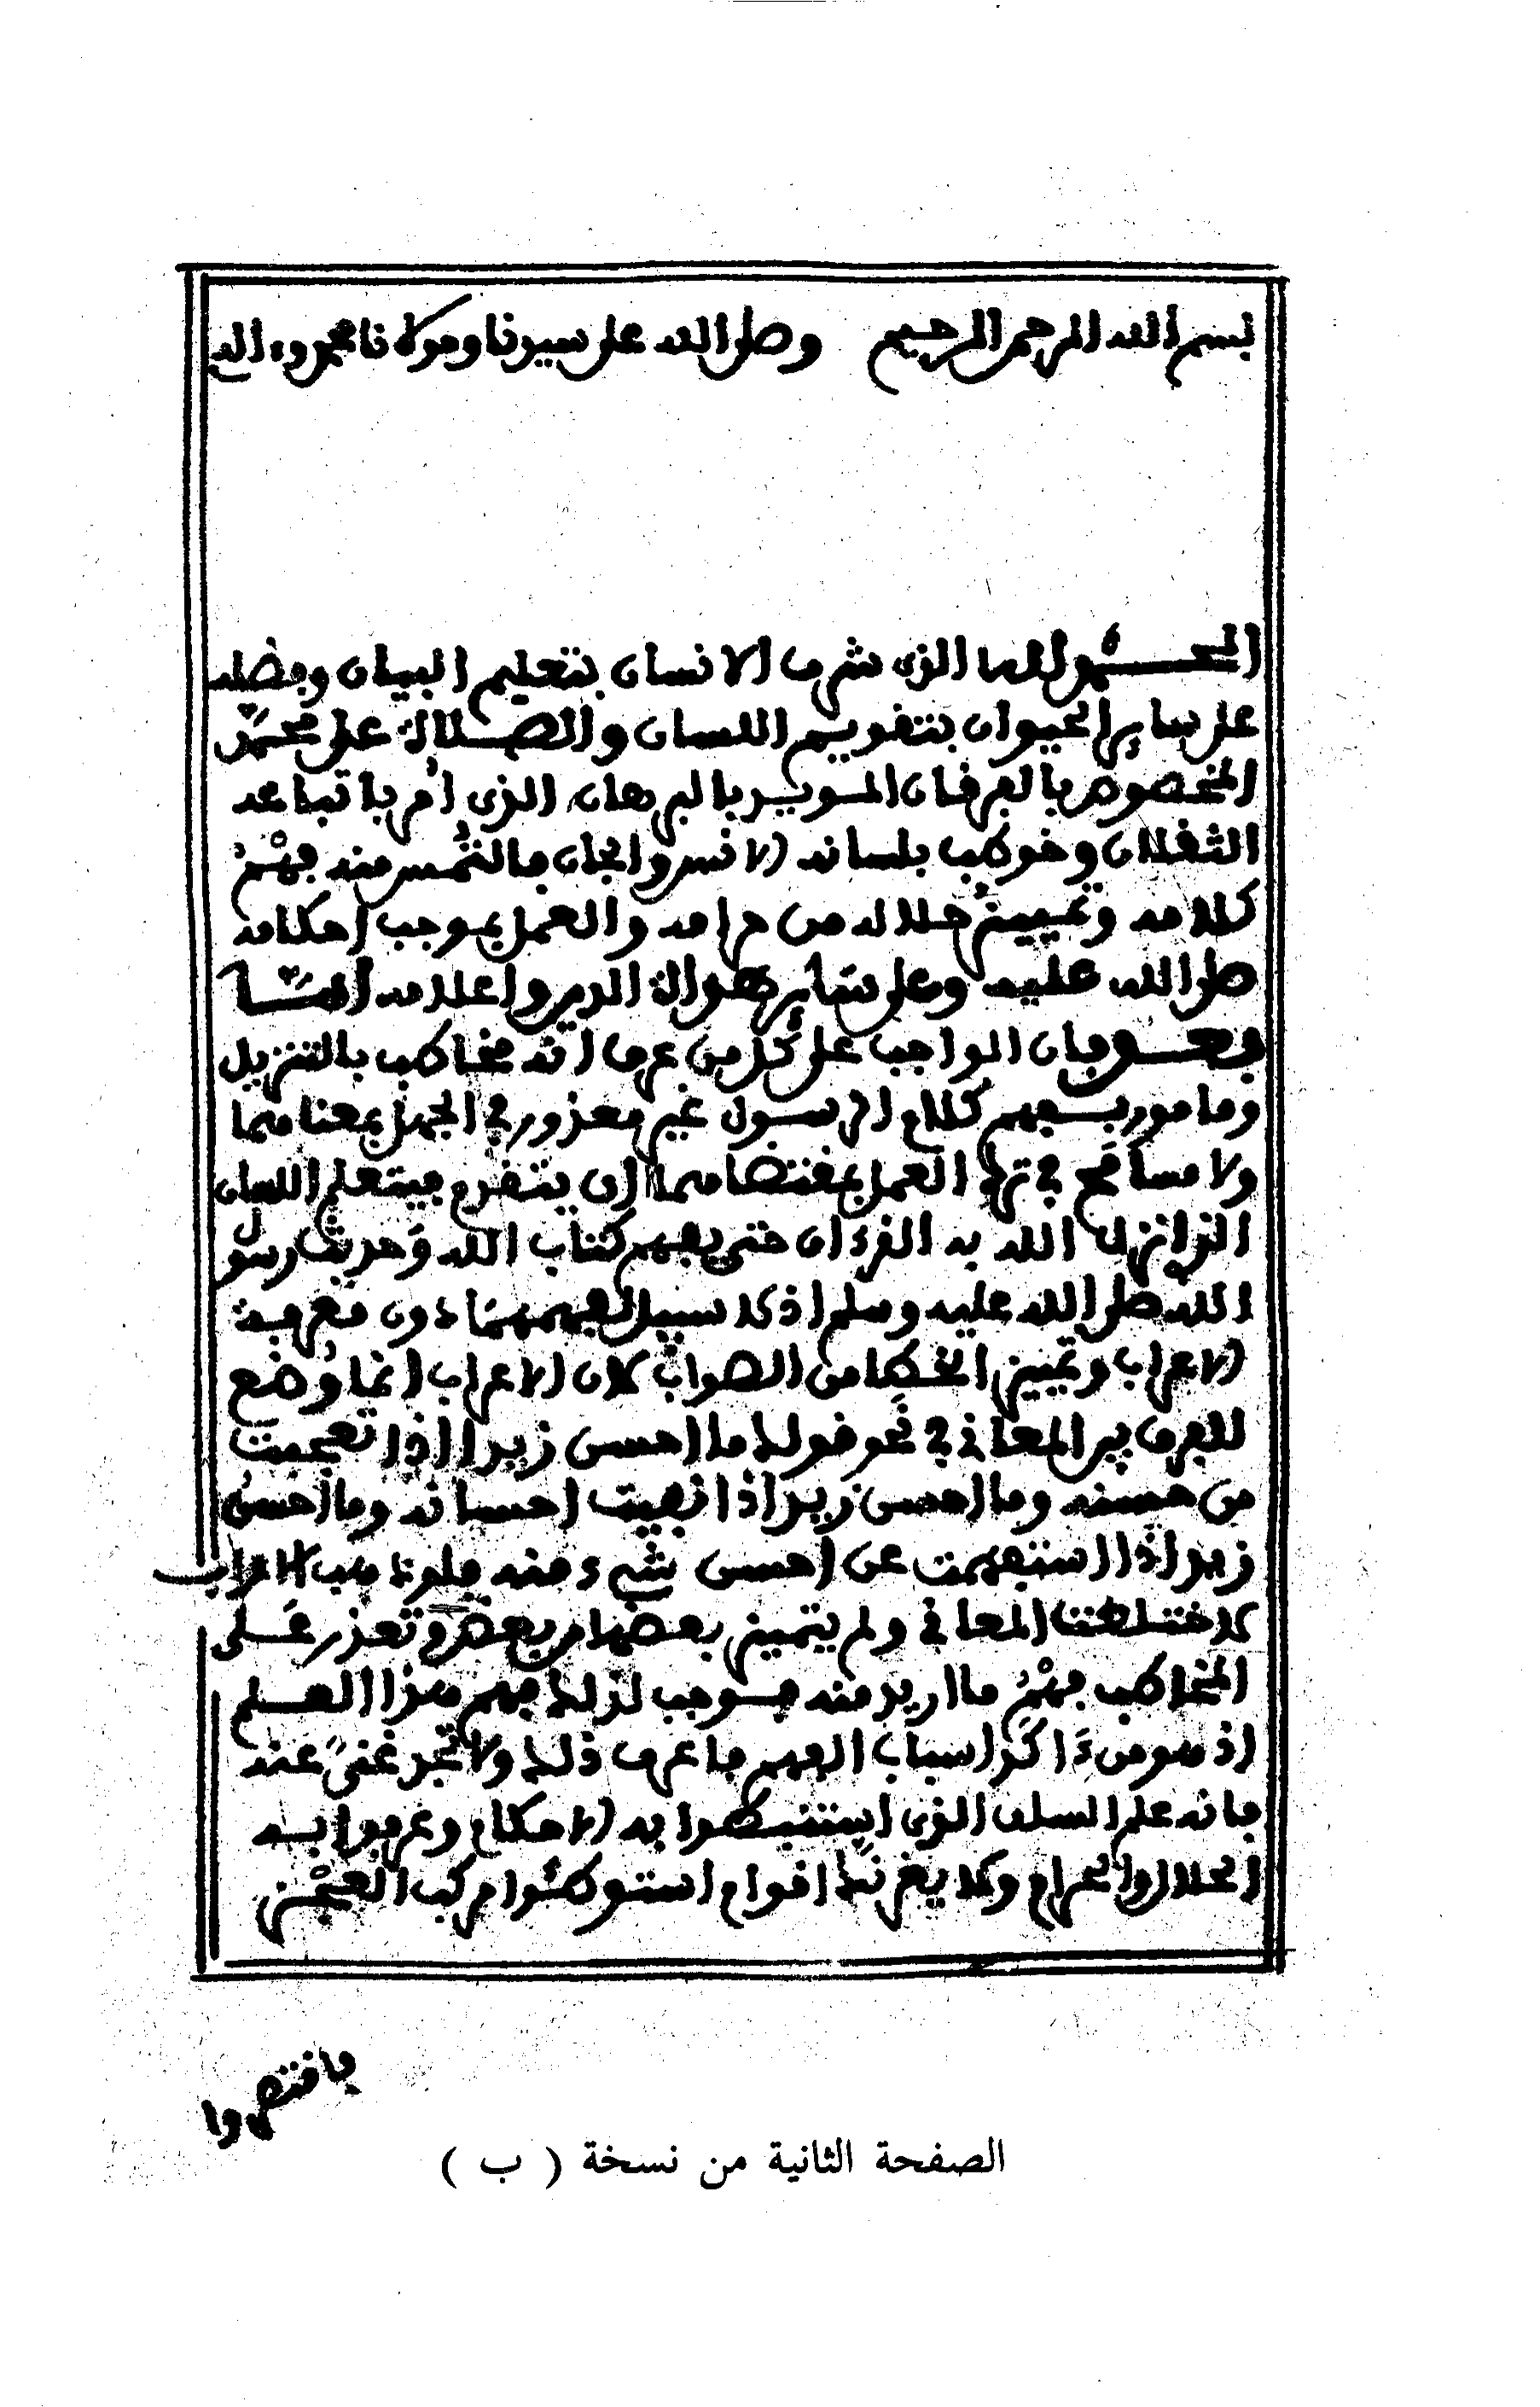 بسم الله الرحمن الرحيم وصلى الله على سيدنا ومولانا محمد وءاله
الحمد لله الذي شرف الانسان بتعليم البيان وفضله
على ساير الحيوان بتقويم اللسان والصلاة على محمد
المخصوص بالعرفان المويد بالبرهان الذي أمر باتباعه
الثقلان وخوطب بلسانه الانس والجان فالتمس منه فهم
كلامه وتمييز حلاله من حرامه والعمل بموجب احكامه
صلى الله عليه وعلى ساير هداة الدين واعلامه أما
بعد فان الواجب على كل من عرف انه مخاطب بالتنزيل
ومامور بفهم كلام الرسول غير معذور في الجهل بمعناهما
ولا مسامح في ترك العمل بمقتضاهما ان يتقدم فيتعلم اللسان
الذي انزل الله به القرءان حتى يفهم كتاب الله وحديث رسول
الله صلى الله عليه وسلم اذ لا سبيل لفهمهما دون معرفة
الاعراب وتمييز الخطا من الصواب لان الاعراب انما وضع
للفرق بين المعاني في نحو قولك ما احسن زيدا اذا تعجبت
من حسنه وما احسن زيد اذا نفيت احسانه وما احسن
زيد اذا استفهمت عن احسن شيء منه فلو ذهب الاعراب
لاختلطت المعاني ولم يتميز بعضها من بعض وتعذر على
المخاطب فهم ما اريد منه فوجب لذلك فهم هذا العلم
اذ هو من ءاكد اسباب الفهم فاعرف ذلك ولا تجد غنى عنه
فانه علم السلف الذي استنبطوا به الاحكام وعرفوا به
الحلال والحرام ولا يغرنك اقوام استوطئوا مركب العجز
فاقتصروا
الصفحة الثانية من نسخة ( ب )